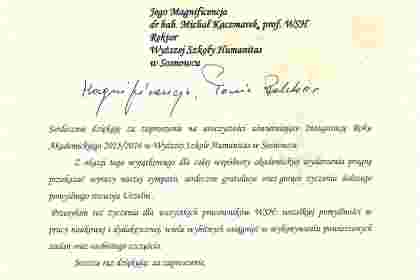 Jego Magnificencja
dr hab. Michał Kaczmarek, prof. WSH
Rektor
Wyższej Szkoły Humanitas
w Sosnowcu
Magnificencjo, Panie Rektorze
Serdecznie dziękuję za zaproszenie na uroczystości uświetniające Inaugurację Roku
Akademickiego 2015/2016 w Wyższej Szkole Humanitas w Sosnowcu.
Z okazji tego wyjątkowego dla całej wspólnoty akademickiej wydarzenia pragnę
przekazać wyrazy naszej sympatii, serdeczne gratulacje oraz gorące życzenia dalszego
pomyślnego rozwoju Uczelni.
Przesyłam też życzenia dla wszystkich pracowników WSH: wszelkiej pomyślności w
pracy naukowej i dydaktycznej, wielu wybitnych osiągnięć w wykonywaniu powierzonych
zadań oraz osobistego szczęścia.
Jeszcze raz dziękując za zaproszenie,